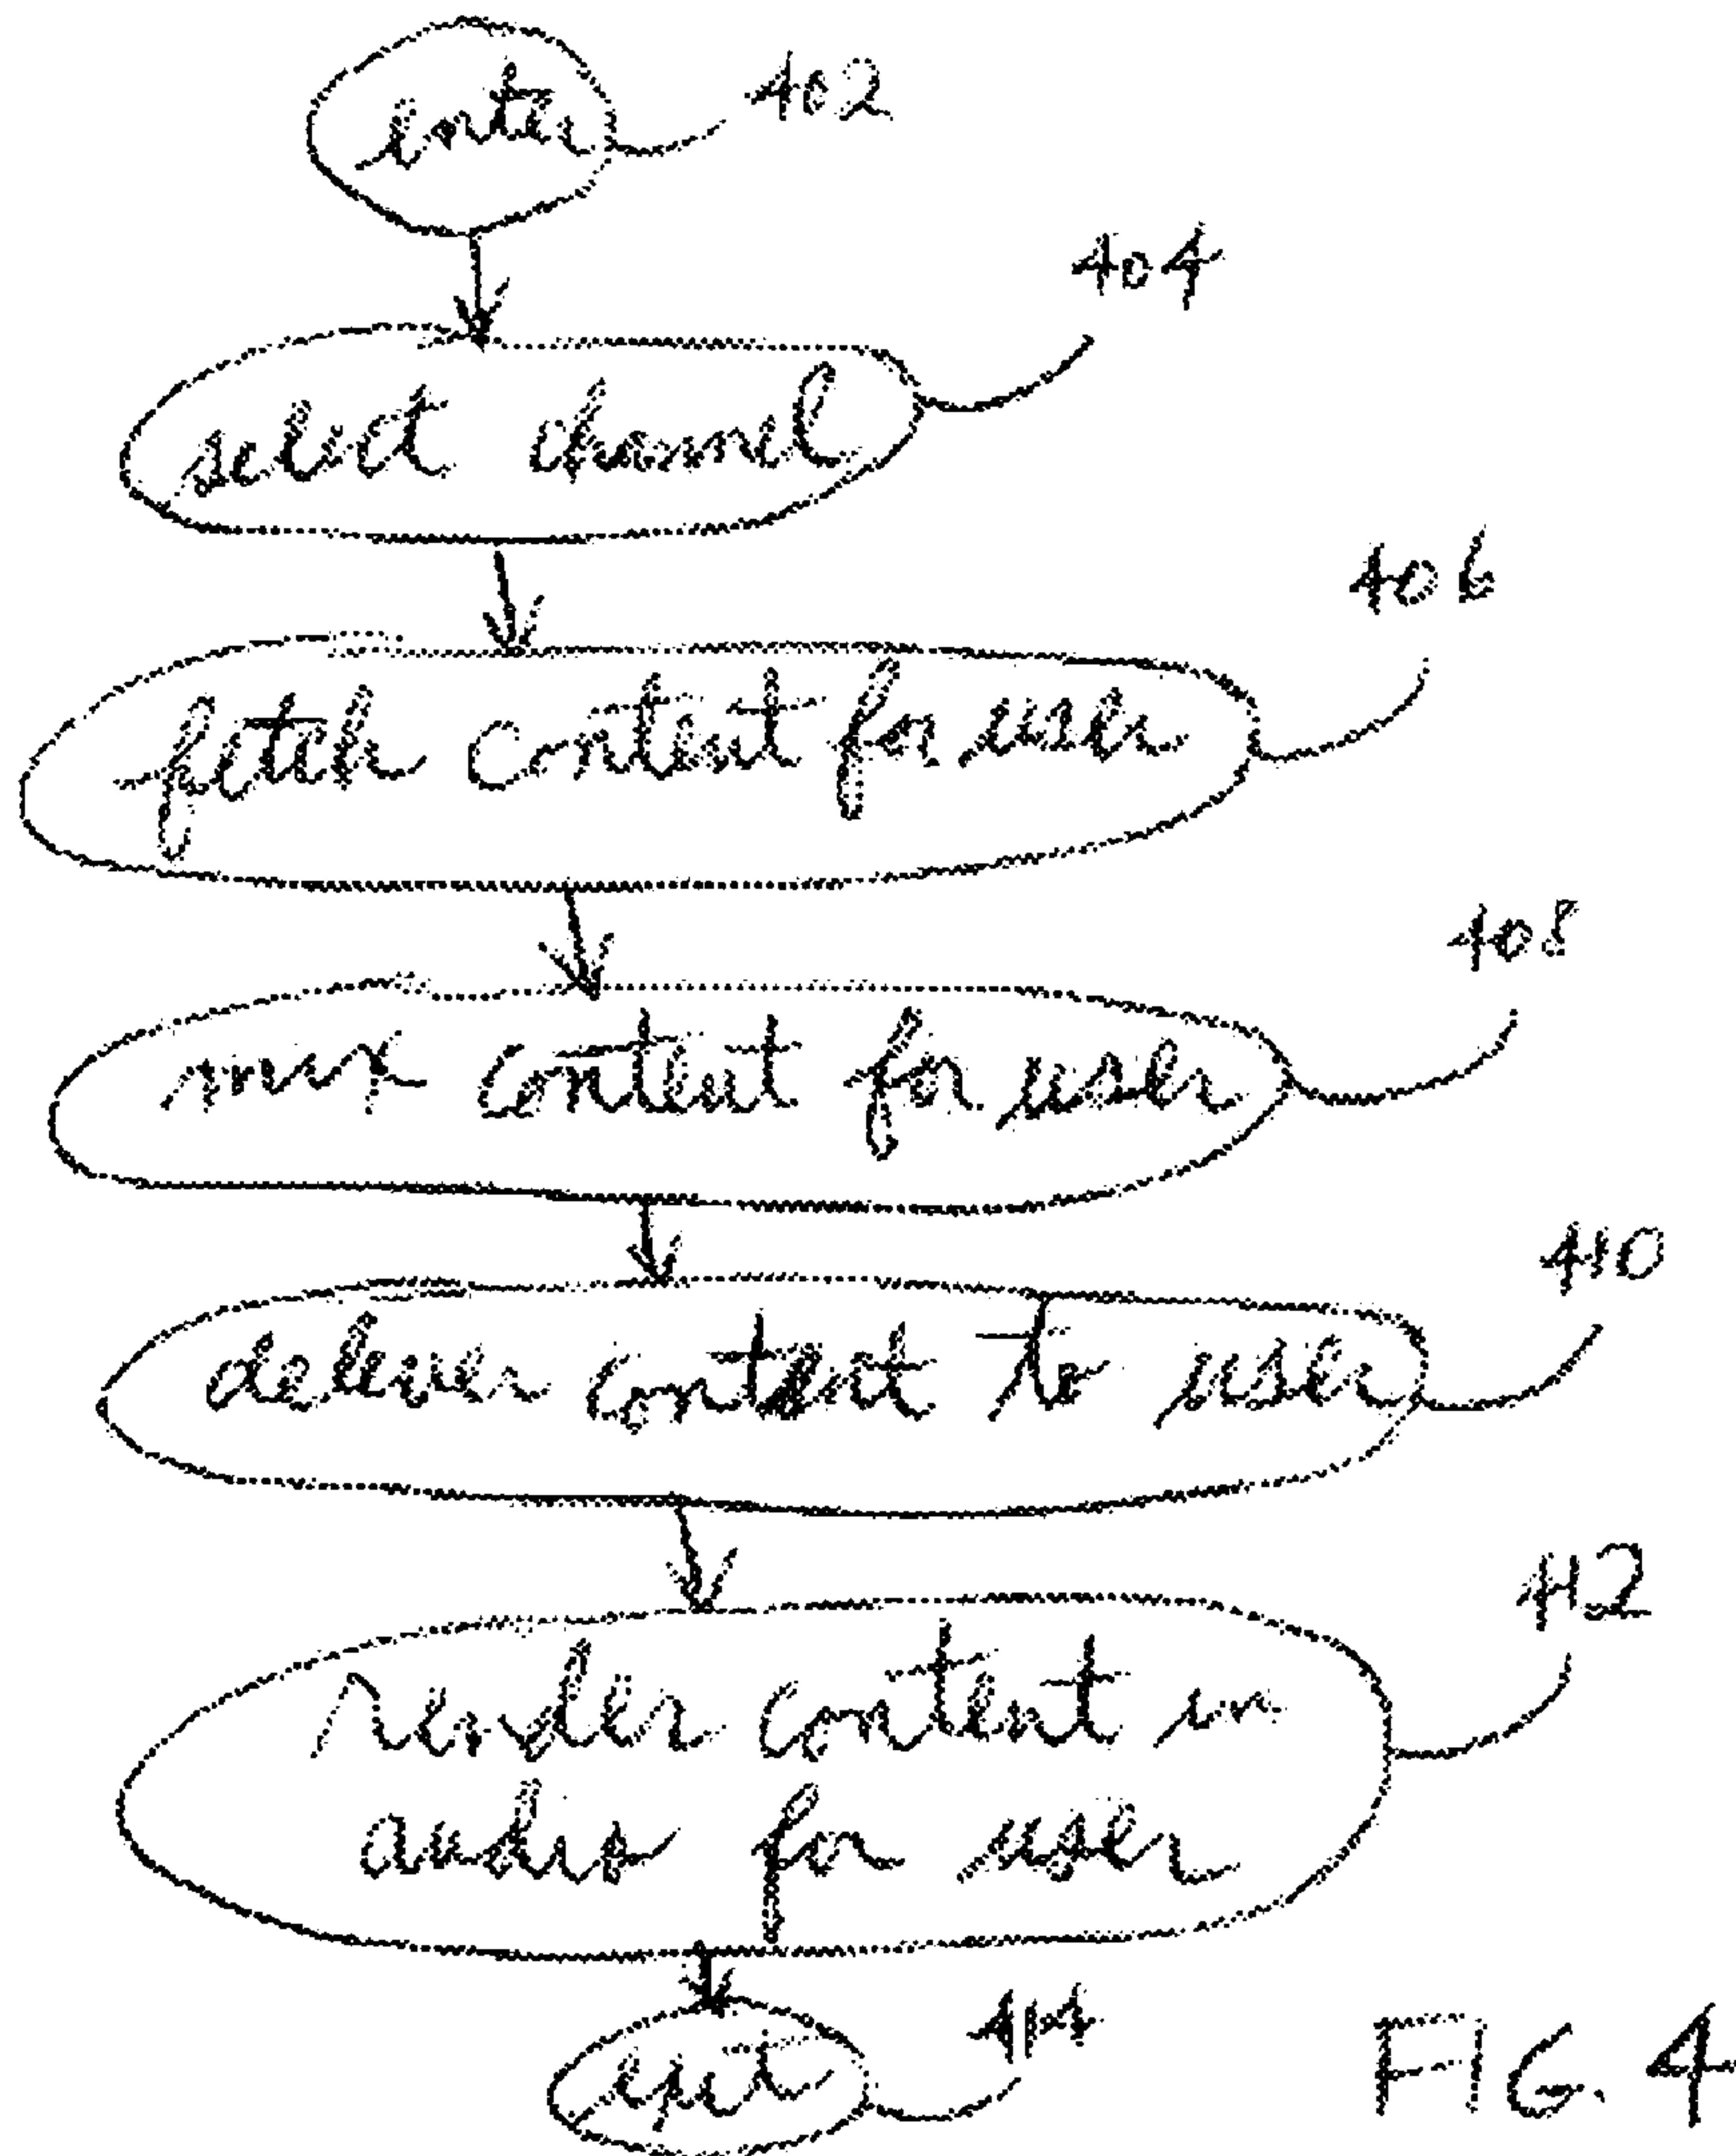 enter
402
404
select channel
406
fetch content for user
408
mix content for user
410
deliver content to user
412
render content in
audio for user
exit
414
FIG. 4